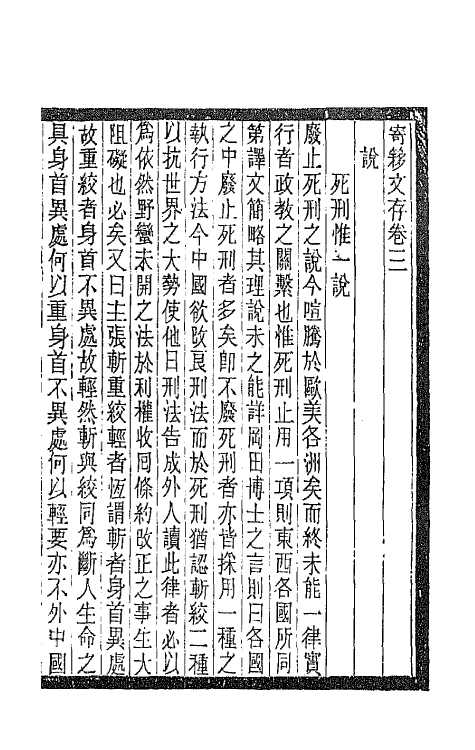 寄簃文存卷三
說
死刑惟一說
廢止死刑之說今喧騰於歐美各洲矣而終未能一律實
行者政教之關繫也惟死刑止用一項則東西各國所同
第譯文簡略其理說未之能詳岡田博士之言則曰各國
之中廢止死刑者多矣卽不廢死刑者亦皆採用一種之
執行方法今中國欲改良刑法而於死刑猶認斬絞二種
以抗世界之大勢使他日刑法告成外人讀此律者必以
爲依然野蠻未開之法於利權收囘條約改正之事生大
阻礙也必矣又曰主張斬重絞輕者恆謂斬者身首異處
故重絞者身首不異處故輕然斬與絞同爲斷人生命之
具身首異處何以重身首不異處何以輕要亦不外中國